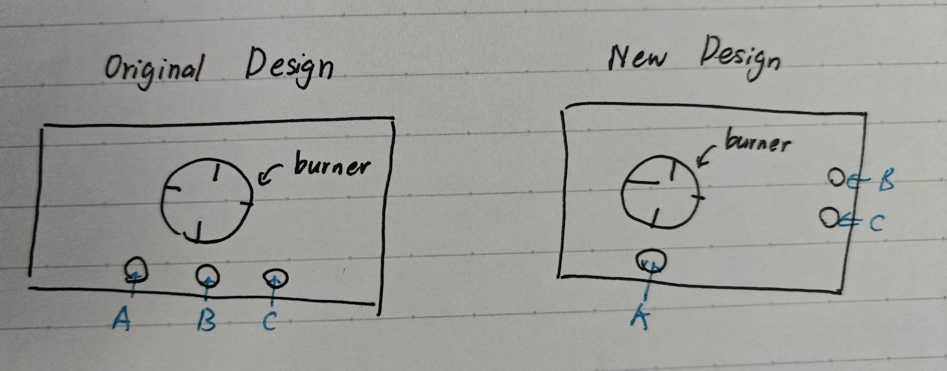 Original Design
burner
A B C
New Design
burner
B
C
A